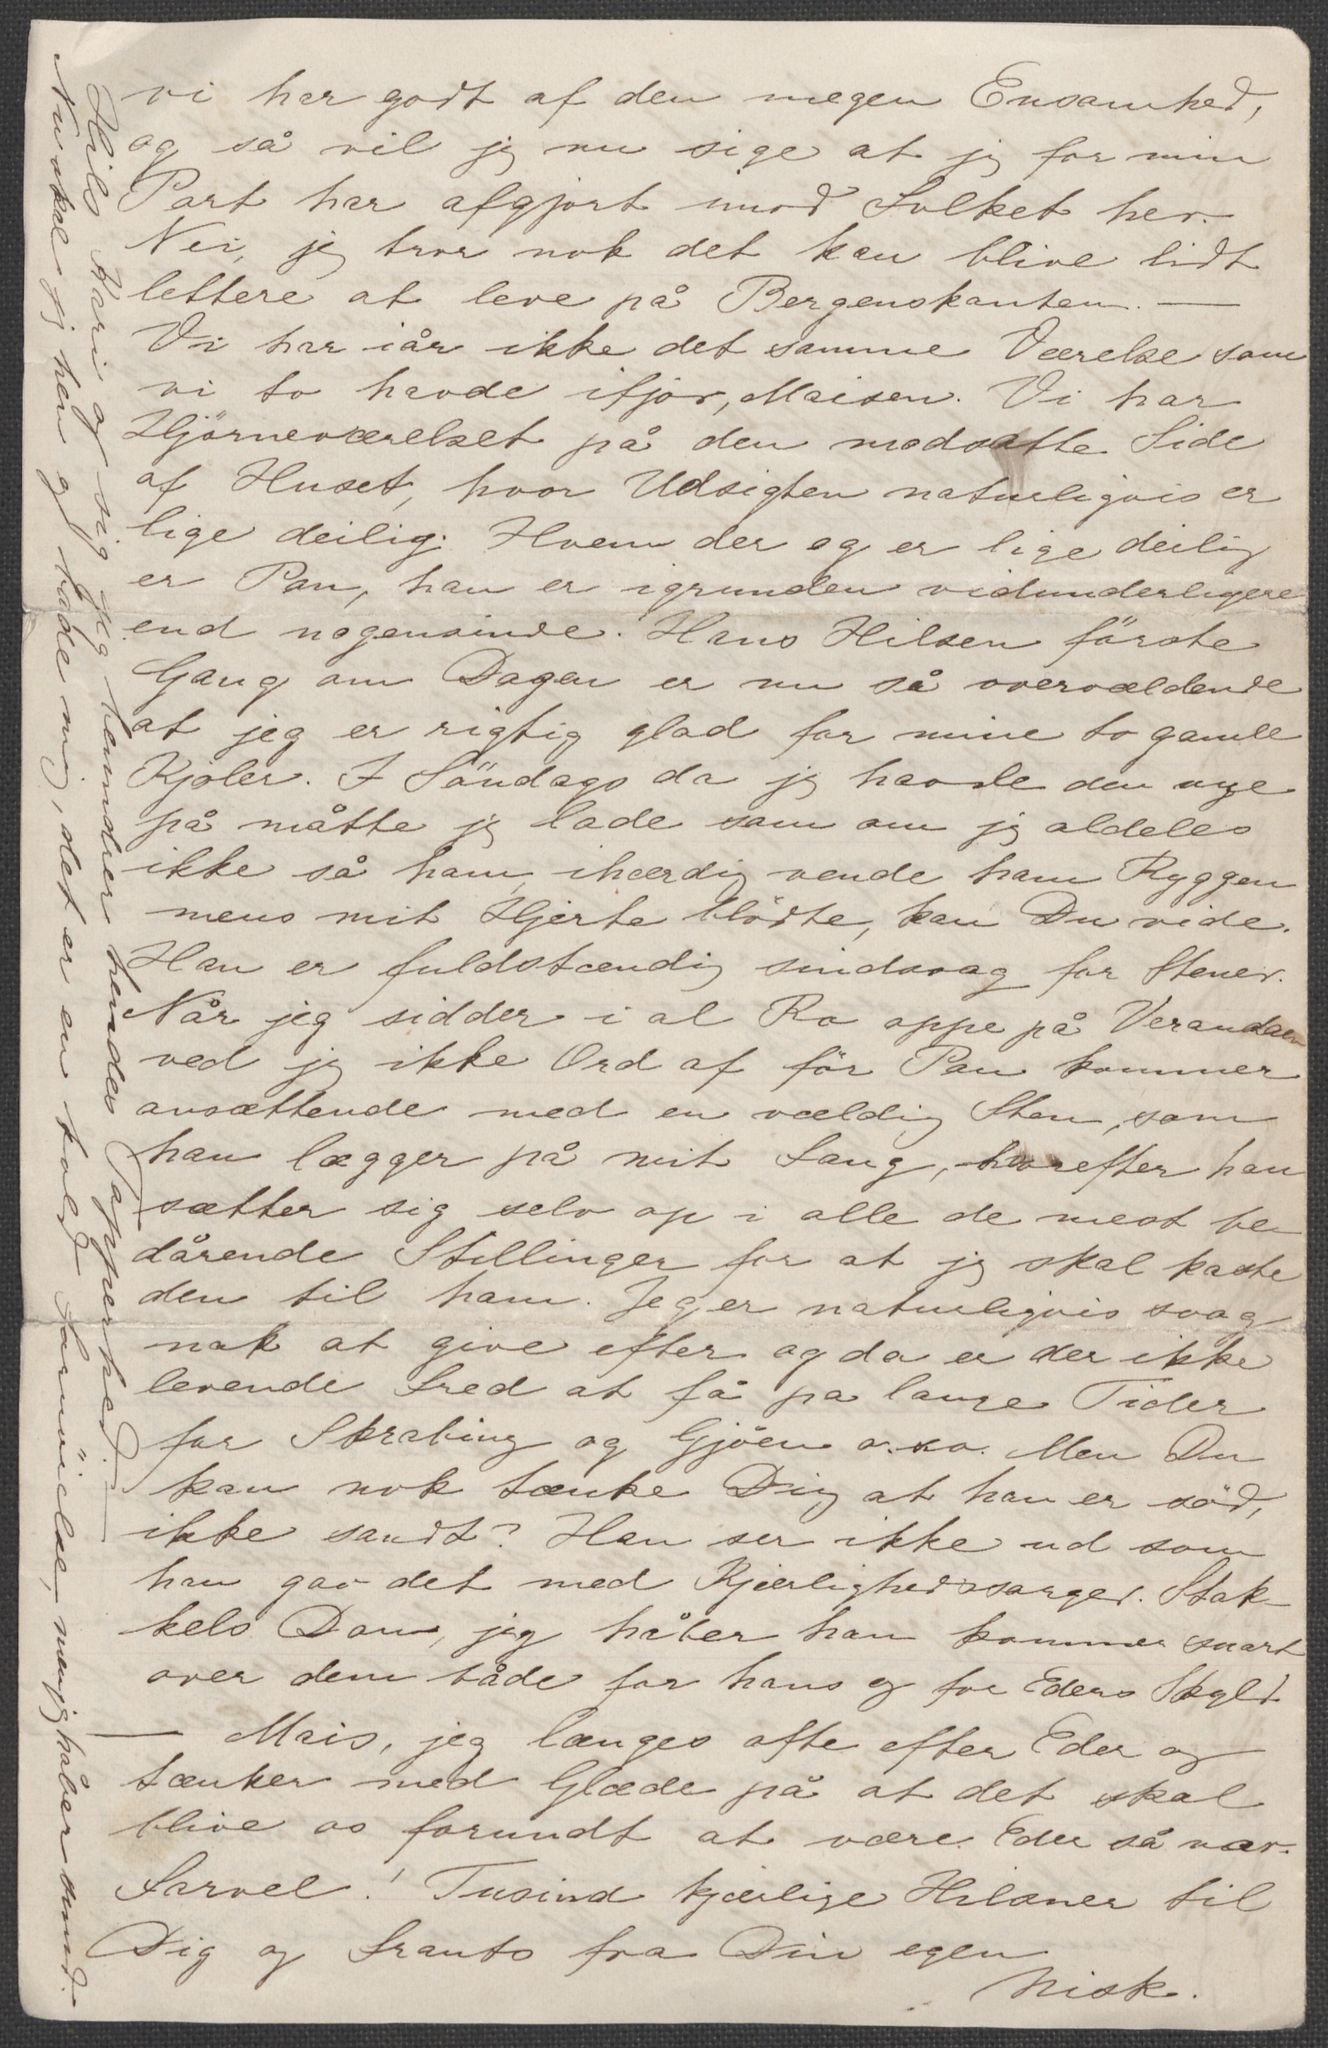 vi har godt af den megen Ensamhed,
og så vil jeg nu sige at jeg for min
Part har afgjort imod Folket her.
Nei, jeg tror nok det kan blive lidt
lettere at leve på Bergenskanten. —
Vi har iår ikke det samme Værelse som
vi to havde ifjor, Maisen. Vi har
Hjörneværelset på den modsatte Side
af Huset, hvor Udsigten naturligvis er
lige deilig. Hvem der og er lige deilig
er Pan, han er igrunden vidunderligere
end nogensinde. Hans Hilsen förste
Gang om Dagen er nu så overvældende
at jeg er rigtig glad for mine to gamle
Kjoler. I Söndags da jeg havde den nye
på måtte jeg lade som om jeg aldeles
ikke så ham, ihærdig vende ham Ryggen
mens mit Hjerte blödte, kan Du vide.
Han er fuldstændig sindsvag for Stener.
Når jeg sidder i al Ro oppe på Verandaen
ved jeg ikke Ord af för Pan kommer
ansættende med en vældig Sten, som
han lægger på mit Fang, hvorefter han
sætter sig selv op i alle de mest be-
dårende Stillinger for at jeg skal kaste
den til ham. Jeg er naturligvis svag
nok at give efter og da er der ikke
levende Fred at få pa lange Tider
for Skrabing og Gjöen o.s.v. Men Du
kan nok tænke Dig at han er söd,
ikke sandt? Han ser ikke ud som
han gav det med Kjærlighedssorger. Stak-
kels Dam, jeg håber han kommer snart
over dem både for hans og for Eders Skyld.
— Mais, jeg længes ofte efter Eder og
tænker med Glæde på at det skal
blive os forundt at være Eder så nær.
Farvel! Tusind kjærlige Hilsner til
Dig og Frants fra Din egen
Misk.
Hils Kari og sig jeg beundrer hendes Tapperhed. —
Nu skal jeg hen og bade mig, det er en kold Fornöielse, men jeg håber sund.